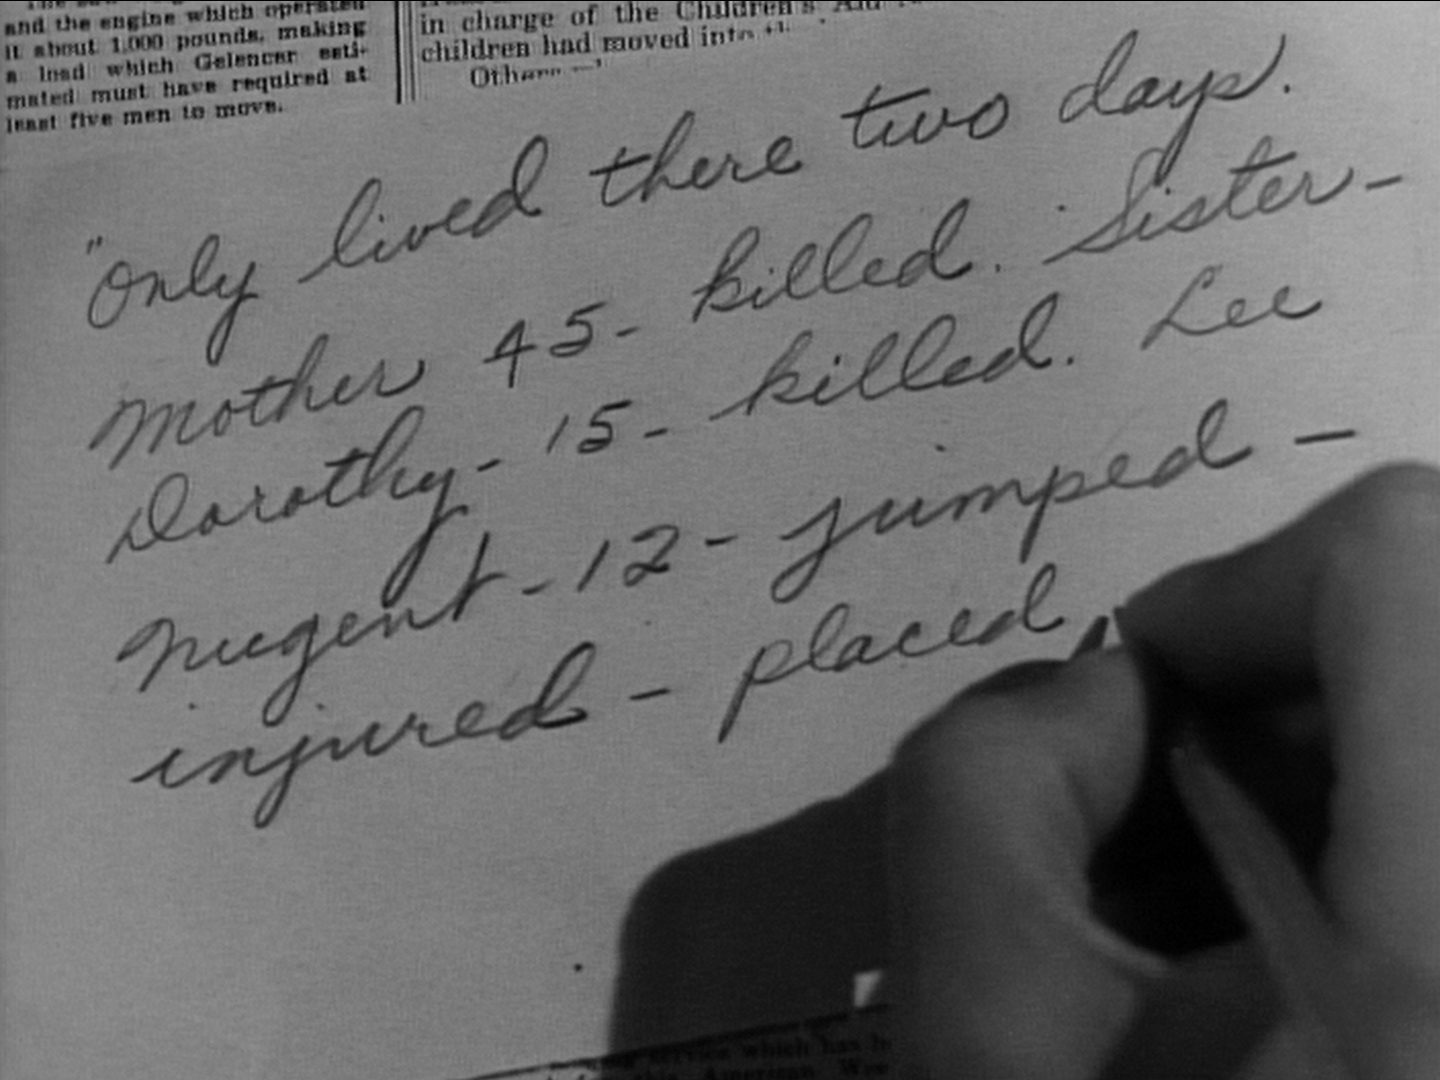 and the engine which operated
it about 1,000 pounds, making
a load which Gelencer esti-
mated must have required at
least five men to move.
in charge of the Children's Aid
children had moved into
"Only lived there two days.
Mother 45- killed. Sister-
Dorothy- 15- killed. Lee
Nugent - 12 - jumped -
injured - placed
service which has
American